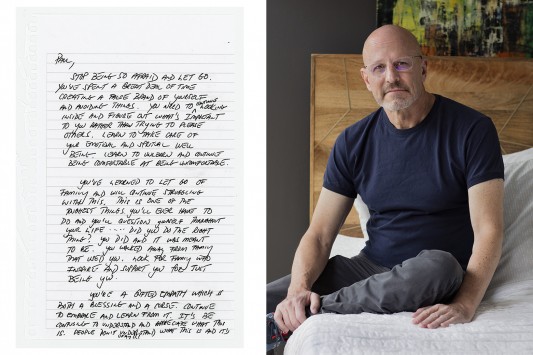 Paul,
STOP BEING SO AFRAID AND LET GO.
YOU'VE SPENT A GREAT DEAL OF TIME
CREATING A FALSE BRAND OF YOURSELF
AND AVOIDING THINGS. YOU NEED TO CONTINUE LOOKING
INSIDE AND FIGURE OUT WHAT'S IMPORTANT
TO YOU RATHER THAN TRYING TO PLEASE
OTHERS. LEARN TO TAKE CARE OF
YOUR EMOTIONAL AND SPIRITUAL WELL
BEING. LEARN TO UNLEARN AND CONTINUE
BEING COMFORTABLE AT BEING UNCOMFORTABLE.
YOU'VE LEARNED TO LET GO OF
FAMILY AND WILL CONTINUE STRUGGLING
WITH THIS. THIS IS ONE OF THE
THINGS YOU'LL EVER HAVE TO
DO AND YOU'LL QUESTION YOURSELF THROUGHOUT
YOUR LIFE ..... DID YOU DO THE RIGHT
THING? YOU DID AND IT WAS MEANT
TO BE. YOU WALKED AWAY FROM FAMILY
THAT USED YOU. LOOK FOR FAMILY WHO
INSPIRE AND SUPPORT YOU FOR JUST
BEING YOU.
YOU'RE A GIFTED EMPATH WHICH IS
BOTH A BLESSING AND A CURSE. CONTINUE
TO EMBRACE AND LEARN FROM IT. IT'S BE
CONFUSING TO UNDERSTAND AND APPRECIATE WHAT THIS
IS. PEOPLE DON'T UNDERSTAND WHAT THIS IS AND IT'S